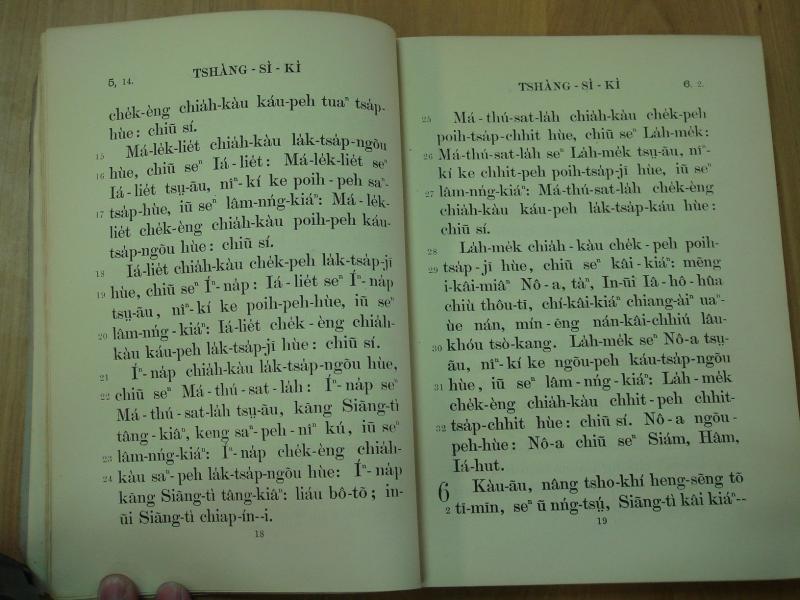 5, 14.
TSHÀNG - SÌ - KÌ
che̍k-èng chia̍h-kàu káu-peh tuaⁿ tsa̍p-
hùe: chiũ sí.
15 Má-le̍k-lie̍t chia̍h-kàu la̍k-tsa̍p-ngõu
16 hùe, chiũ seⁿ Iá-lie̍t: Má-le̍k-lie̍t seⁿ
Iá-lie̍t tsṳ-āu, nîⁿ-kí ke poih-peh saⁿ-
17 tsa̍p-hùe, iũ seⁿ lâm-nńg-kiáⁿ: Má-le̍k-
lie̍t che̍k-èng chia̍h-kàu poih-peh káu-
tsa̍p-ngõu hùe: chiũ sí.
18 Iá-lie̍t chia̍h-kàu che̍k-peh la̍k-tsa̍p-jī
19 hùe, chiũ seⁿ Íⁿ-na̍p: Iá-lie̍t seⁿ Íⁿ-na̍p
tsṳ-āu, nîⁿ-kí ke poih-peh-hùe, iũ seⁿ
20 lâm-nńg-kiáⁿ: Iá-lie̍t che̍k-èng chia̍h-
kàu káu-peh la̍k-tsa̍p-jī hùe: chiũ sí.
21 Íⁿ-na̍p chia̍h-kàu la̍k-tsa̍p-ngõu hùe,
22 chiũ seⁿ Má-thú-sat-la̍h: Íⁿ-na̍p seⁿ
Má-thú-sat-la̍h tsṳ-āu, kāng Siāng-tì
tâng-kiâⁿ, keng saⁿ-peh-nîⁿ kú, iũ seⁿ
23 lâm-nńg-kiáⁿ: Íⁿ-na̍p che̍k-èng chia̍h-
24 kàu saⁿ-peh la̍k-tsa̍p-ngõu hùe: Íⁿ-na̍p
kāng Siāng-tì tâng-kiâⁿ: liáu bô-tõ; in-
ũi Siāng-tì chiap-ín--i.
18
TSHÀNG - SÌ - KÌ
6. 2.
25 Má-thú-sat-la̍h chia̍h-kàu che̍k-peh
poih-tsa̍p-chhit hùe, chiũ seⁿ La̍h-me̍k:
26 Má-thú-sat-la̍h seⁿ La̍h-me̍k tsṳ-āu, nîⁿ-
kí ke chhit-peh poih-tsa̍p-jī hùe, iũ seⁿ
27 lâm-nńg-kiáⁿ: Má-thú-sat-la̍h che̍k-èng
chia̍h-kàu káu-peh la̍k-tsa̍p-káu hùe:
chiũ sí.
28 La̍h-me̍k chia̍h-kàu che̍k-peh poih-
29 tsa̍p-jī hùe, chiũ seⁿ kâi-kiáⁿ: mēng
i-kâi-miâⁿ Nô-a, tàⁿ, In-ũi Iâ-hô-hûa
chiù thôu-tī, chí-kâi-kiáⁿ chiang-àiⁿ uaⁿ-
ùe nán, mín-ēng nán-kâi-chhiú lâu-
30 khóu tsò-kang. La̍h-me̍k seⁿ Nô-a tsṳ-
āu, nîⁿ-kí ke ngõu-peh káu-tsa̍p-ngõu
31 hùe, iũ seⁿ lâm-nńg-kiáⁿ: La̍h-me̍k
che̍k-èng chia̍h-kàu chhit-peh chhit-
32 tsa̍p-chhit hùe: chiũ sí. Nô-a ngõu-
peh-hùe: Nô-a chiũ seⁿ Siám, Hâm,
Iá-hut.
6 Kàu-āu, nâng tsho-khí heng-sẽng tõ
2 tī-mīn, seⁿ ũ nńg-tsṳ́, Siāng-tì kâi kiáⁿ--
19